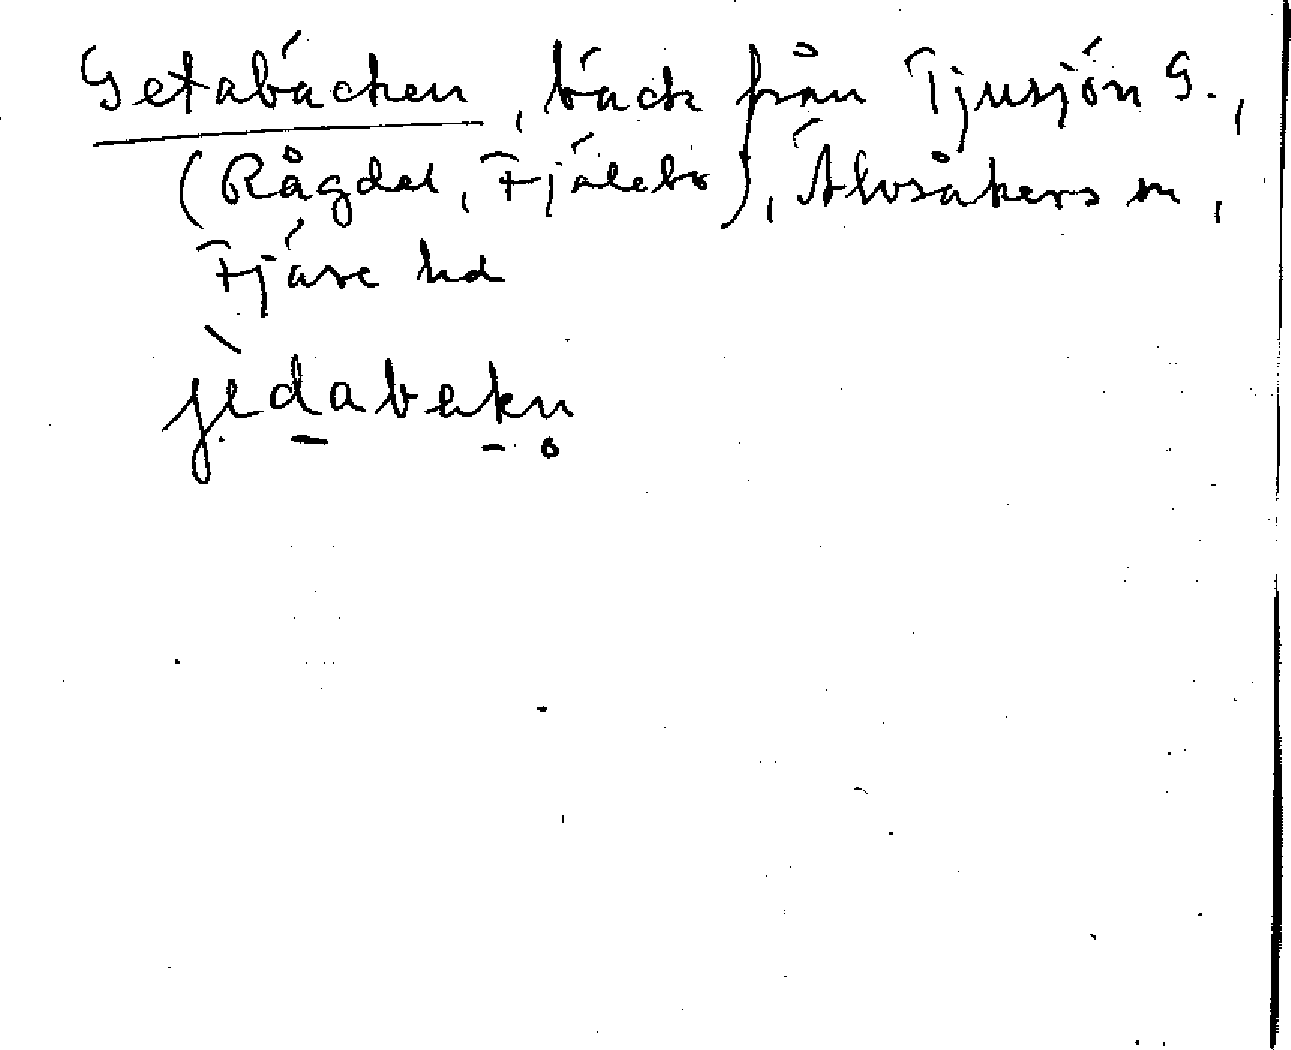 Getabäcken, bäck från Tjusjön S.,
(Rågdal, Fjälebo), Älvsåkers sn,
Fjäre hd
jèdabekn̥